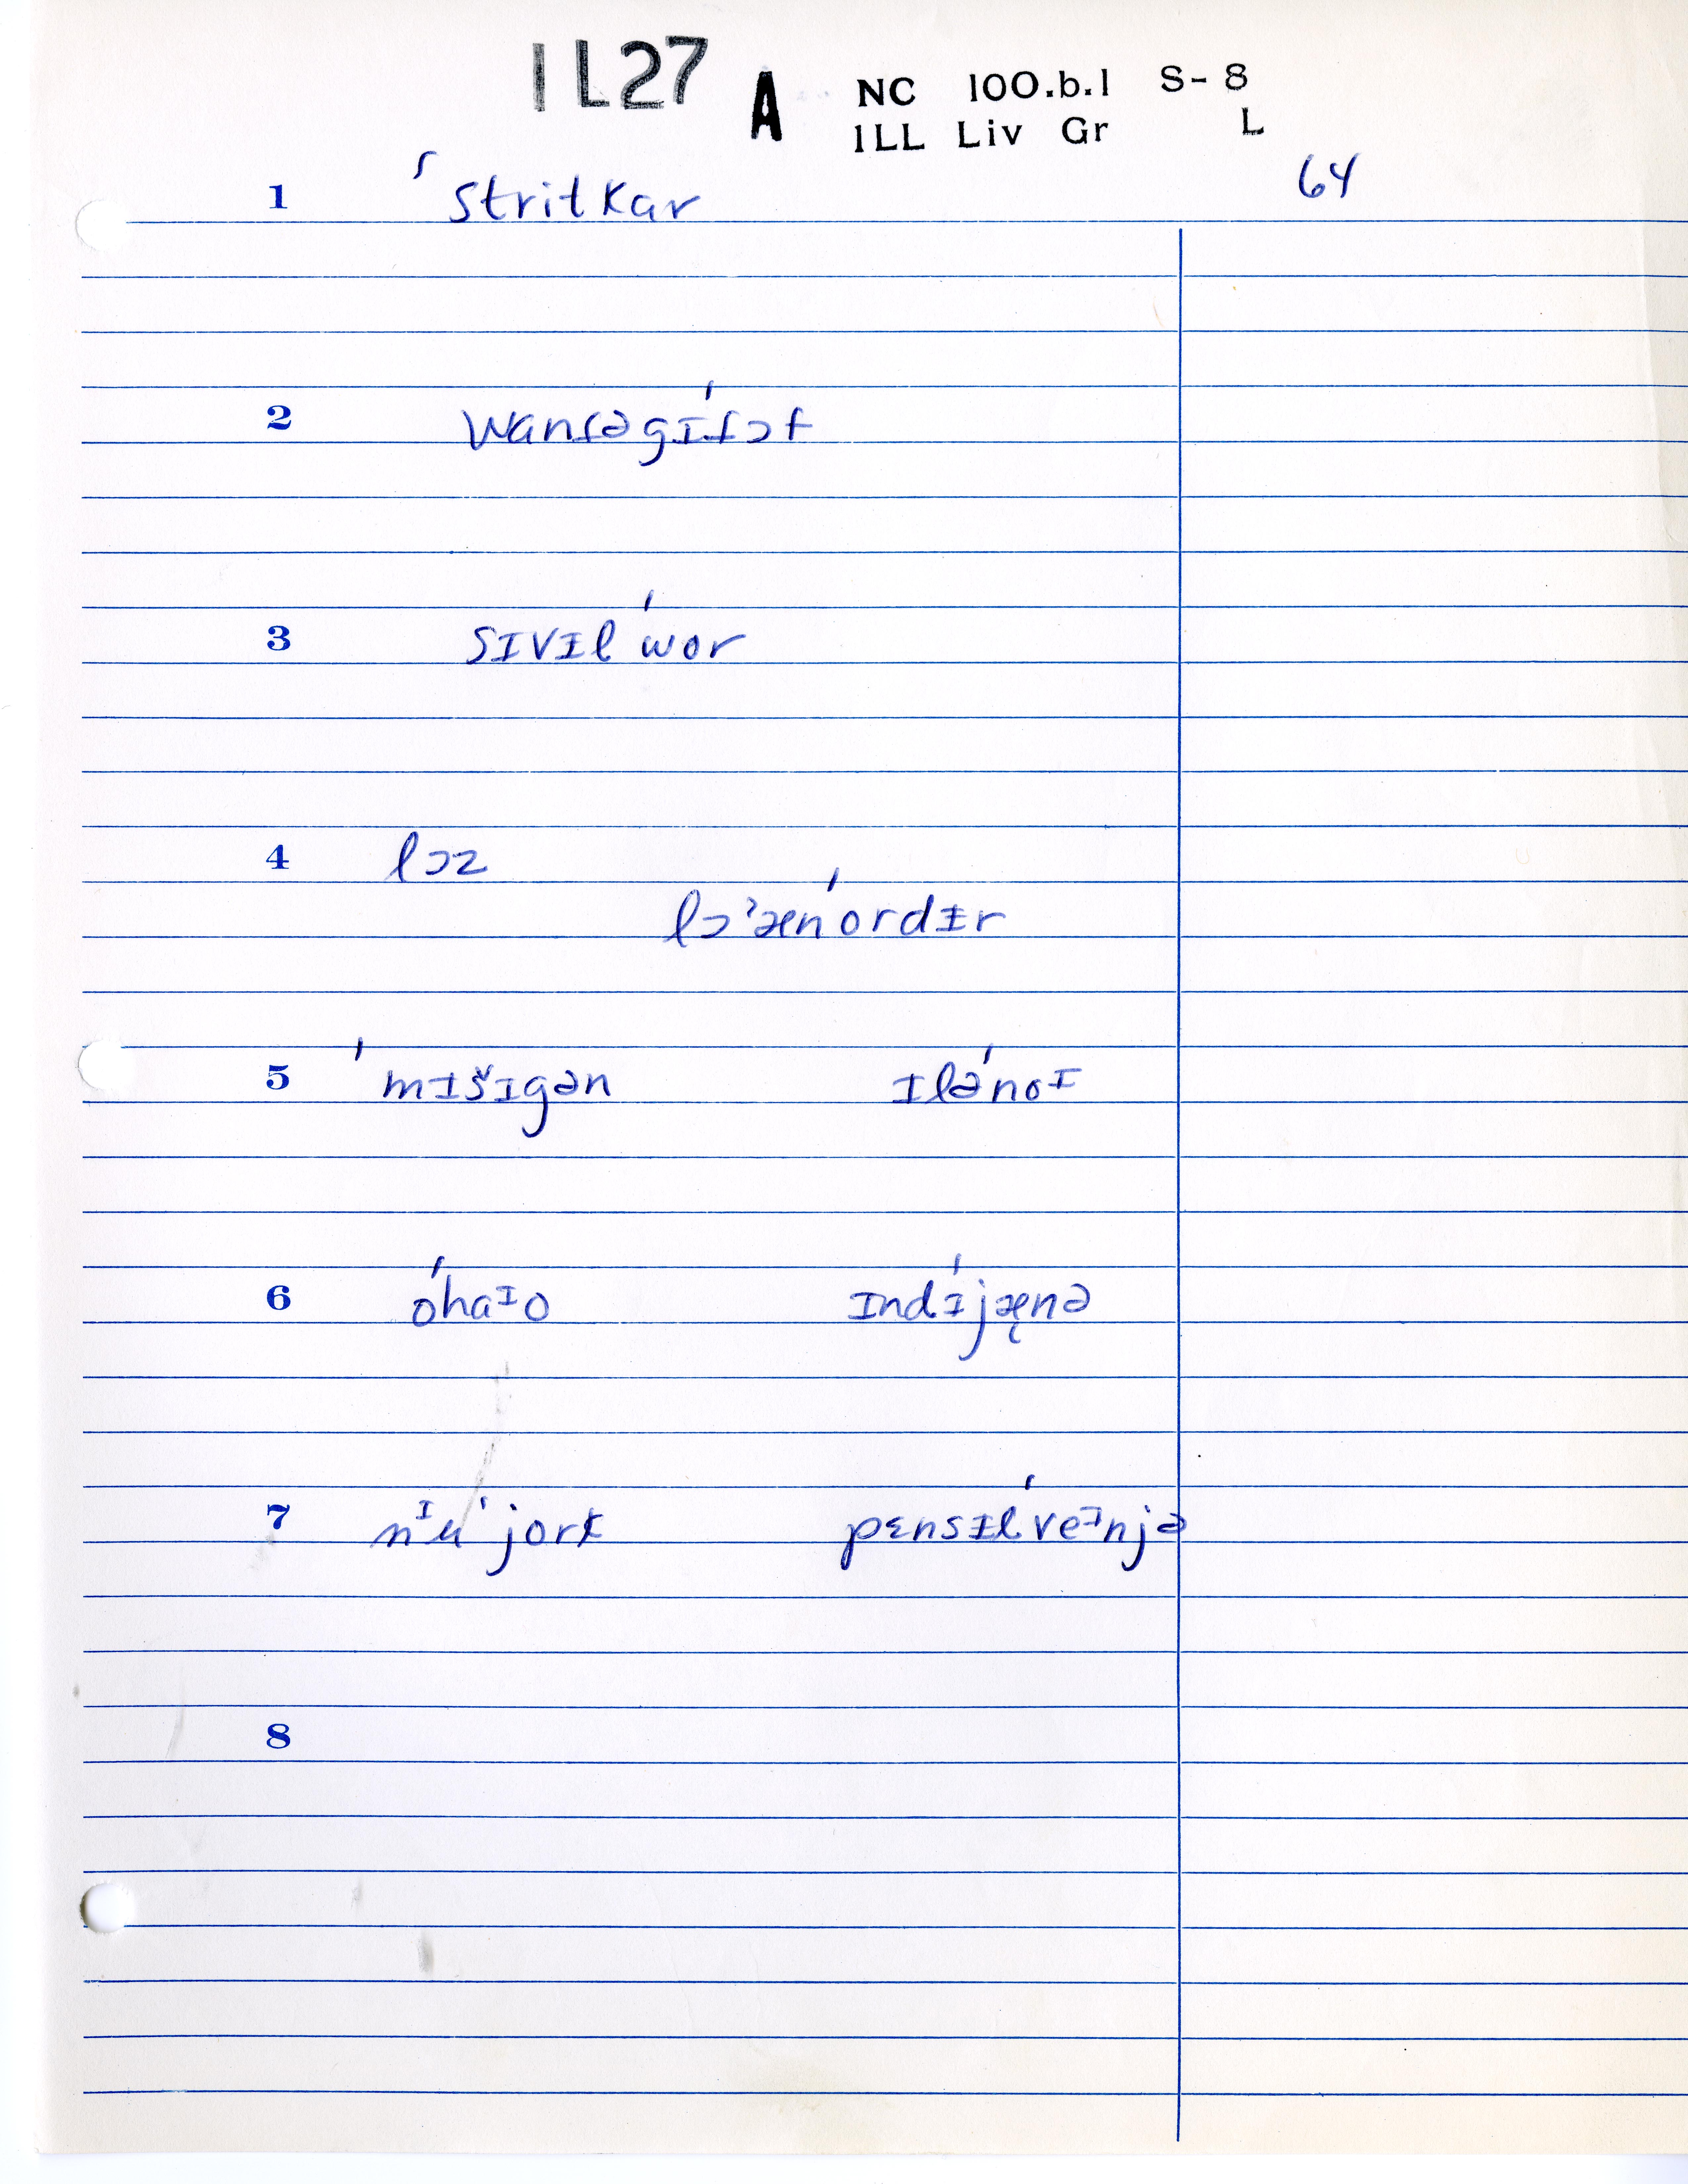 IL27 A NC 100.b.1 S-8
ILL Liv Gr L
64
1 ˈstritkar
2 wantəgɪ́tɔf
3 sɪvɪl ˈwor
4 lɔz
lɔˀænˈordɨr
5 ˈmɪšɪgən ɪləˈnoᶦ
6 óhaᶦo ɪndɪ́jæ̨nə
7 nᶦuˈjork pɛnsɨlˈveᶦnjə
8